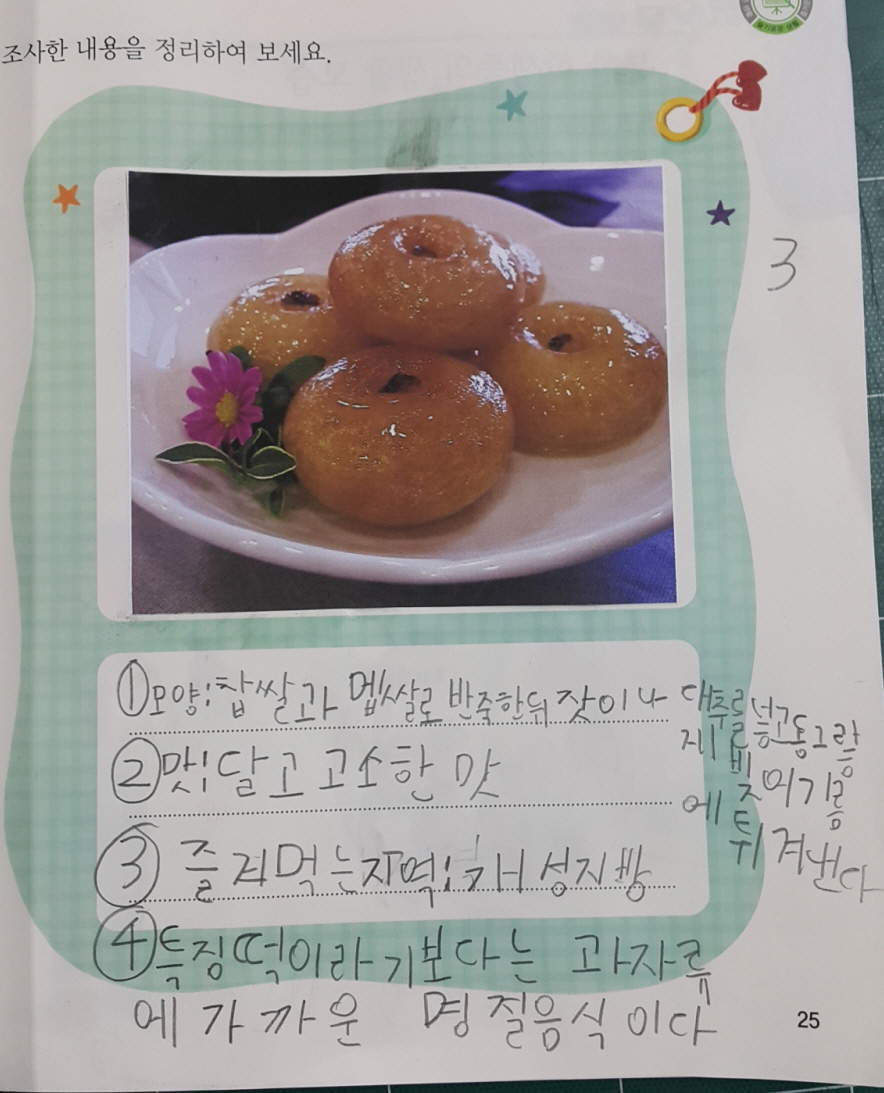 조사한 내용을 정리하여 보세요.
3
①모양:찹쌀과 멥쌀로 반죽한뒤 잣이나 대추를 넣고동그랑
제 빚어기름
에 튀겨낸다
②맛:달고 고소한 맛
③ 즐겨먹는지역:개성지방
④특징떡이라기보다는 과자류
에 가까운 명절음식이다
25